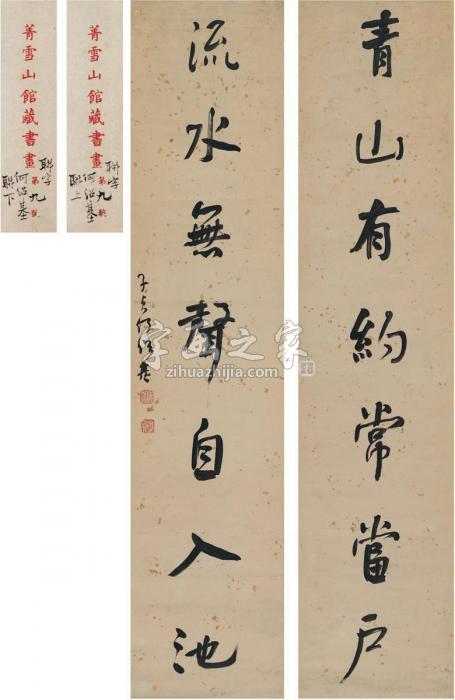 青山有約常當户
流水無聲自入池
子貞何紹基
菁雪山館藏書畫
聯字
第九號
何紹基
聯上
菁雪山館藏書畫
聯字
第九號
何紹基
聯下
字画之家
zihuazhijia.com